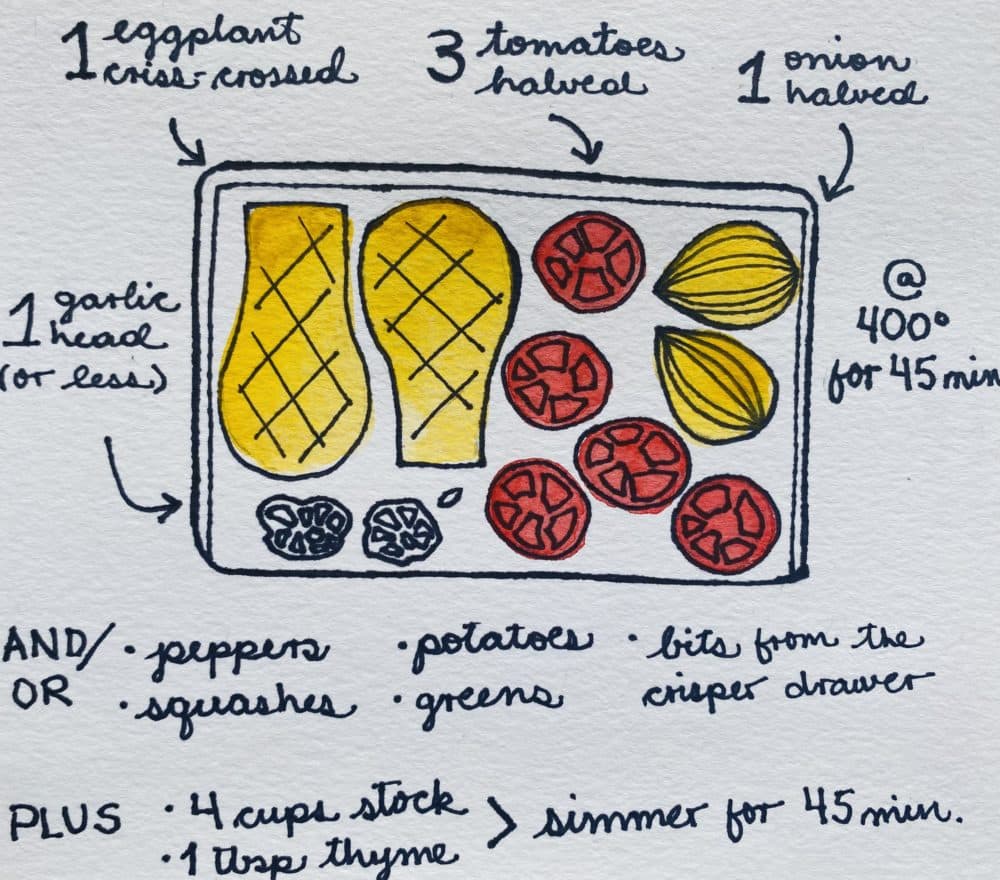 1 eggplant
criss-crossed
3 tomatoes
halved
1 onion
halved
1 garlic
head
(or less)
@
400°
for 45 min
AND/
OR
· peppers
· squashes
· potatoes
· greens
· bits from the
crisper drawer
PLUS
· 4 cups stock
· 1 tbsp thyme
> simmer for 45 min.